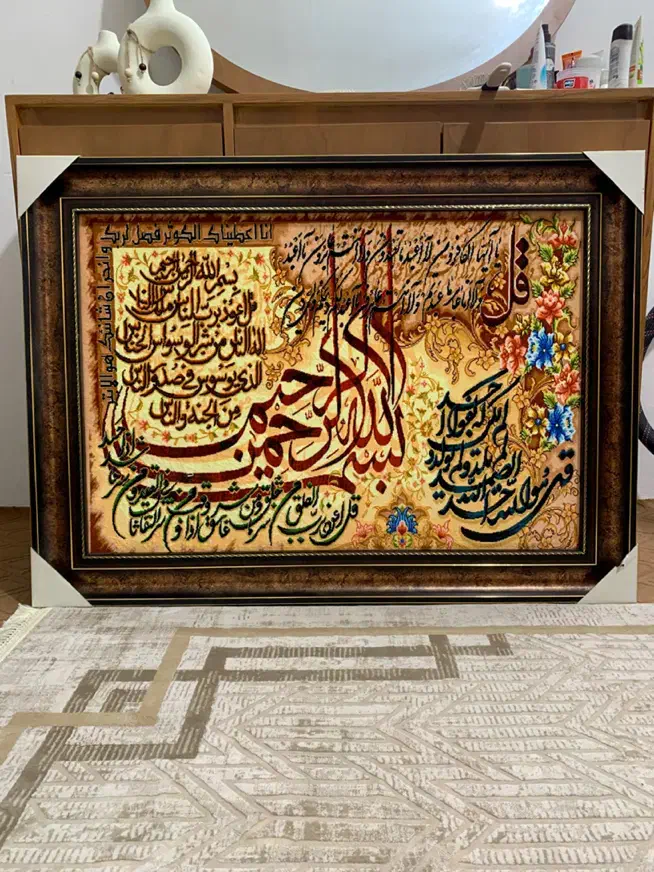 انا اعطیناک الکوثر فصل لربک
وانحر ان شانئک هو الابتر
بسم الله الرحمن الرحیم
قل اعوذ برب الناس ملک الناس
اله الناس من شر الوسواس الخناس
الذی یوسوس فی صدور الناس
من الجنة والناس
قل
یا ایها الکافرون لا اعبد ما تعبدون ولا انتم عابدون ما اعبد
ولا انا عابد ما عبدتم ولا انتم عابدون ما اعبد لکم دینکم ولی دین
بسم الله الرحمن الرحیم
قل هو الله احد
الله الصمد لم یلد ولم یولد
ولم یکن له کفوا احد
قل اعوذ برب الفلق من شر ما خلق ومن شر غاسق اذا وقب ومن شر النفاثات
فی العقد ومن شر حاسد اذا حسد